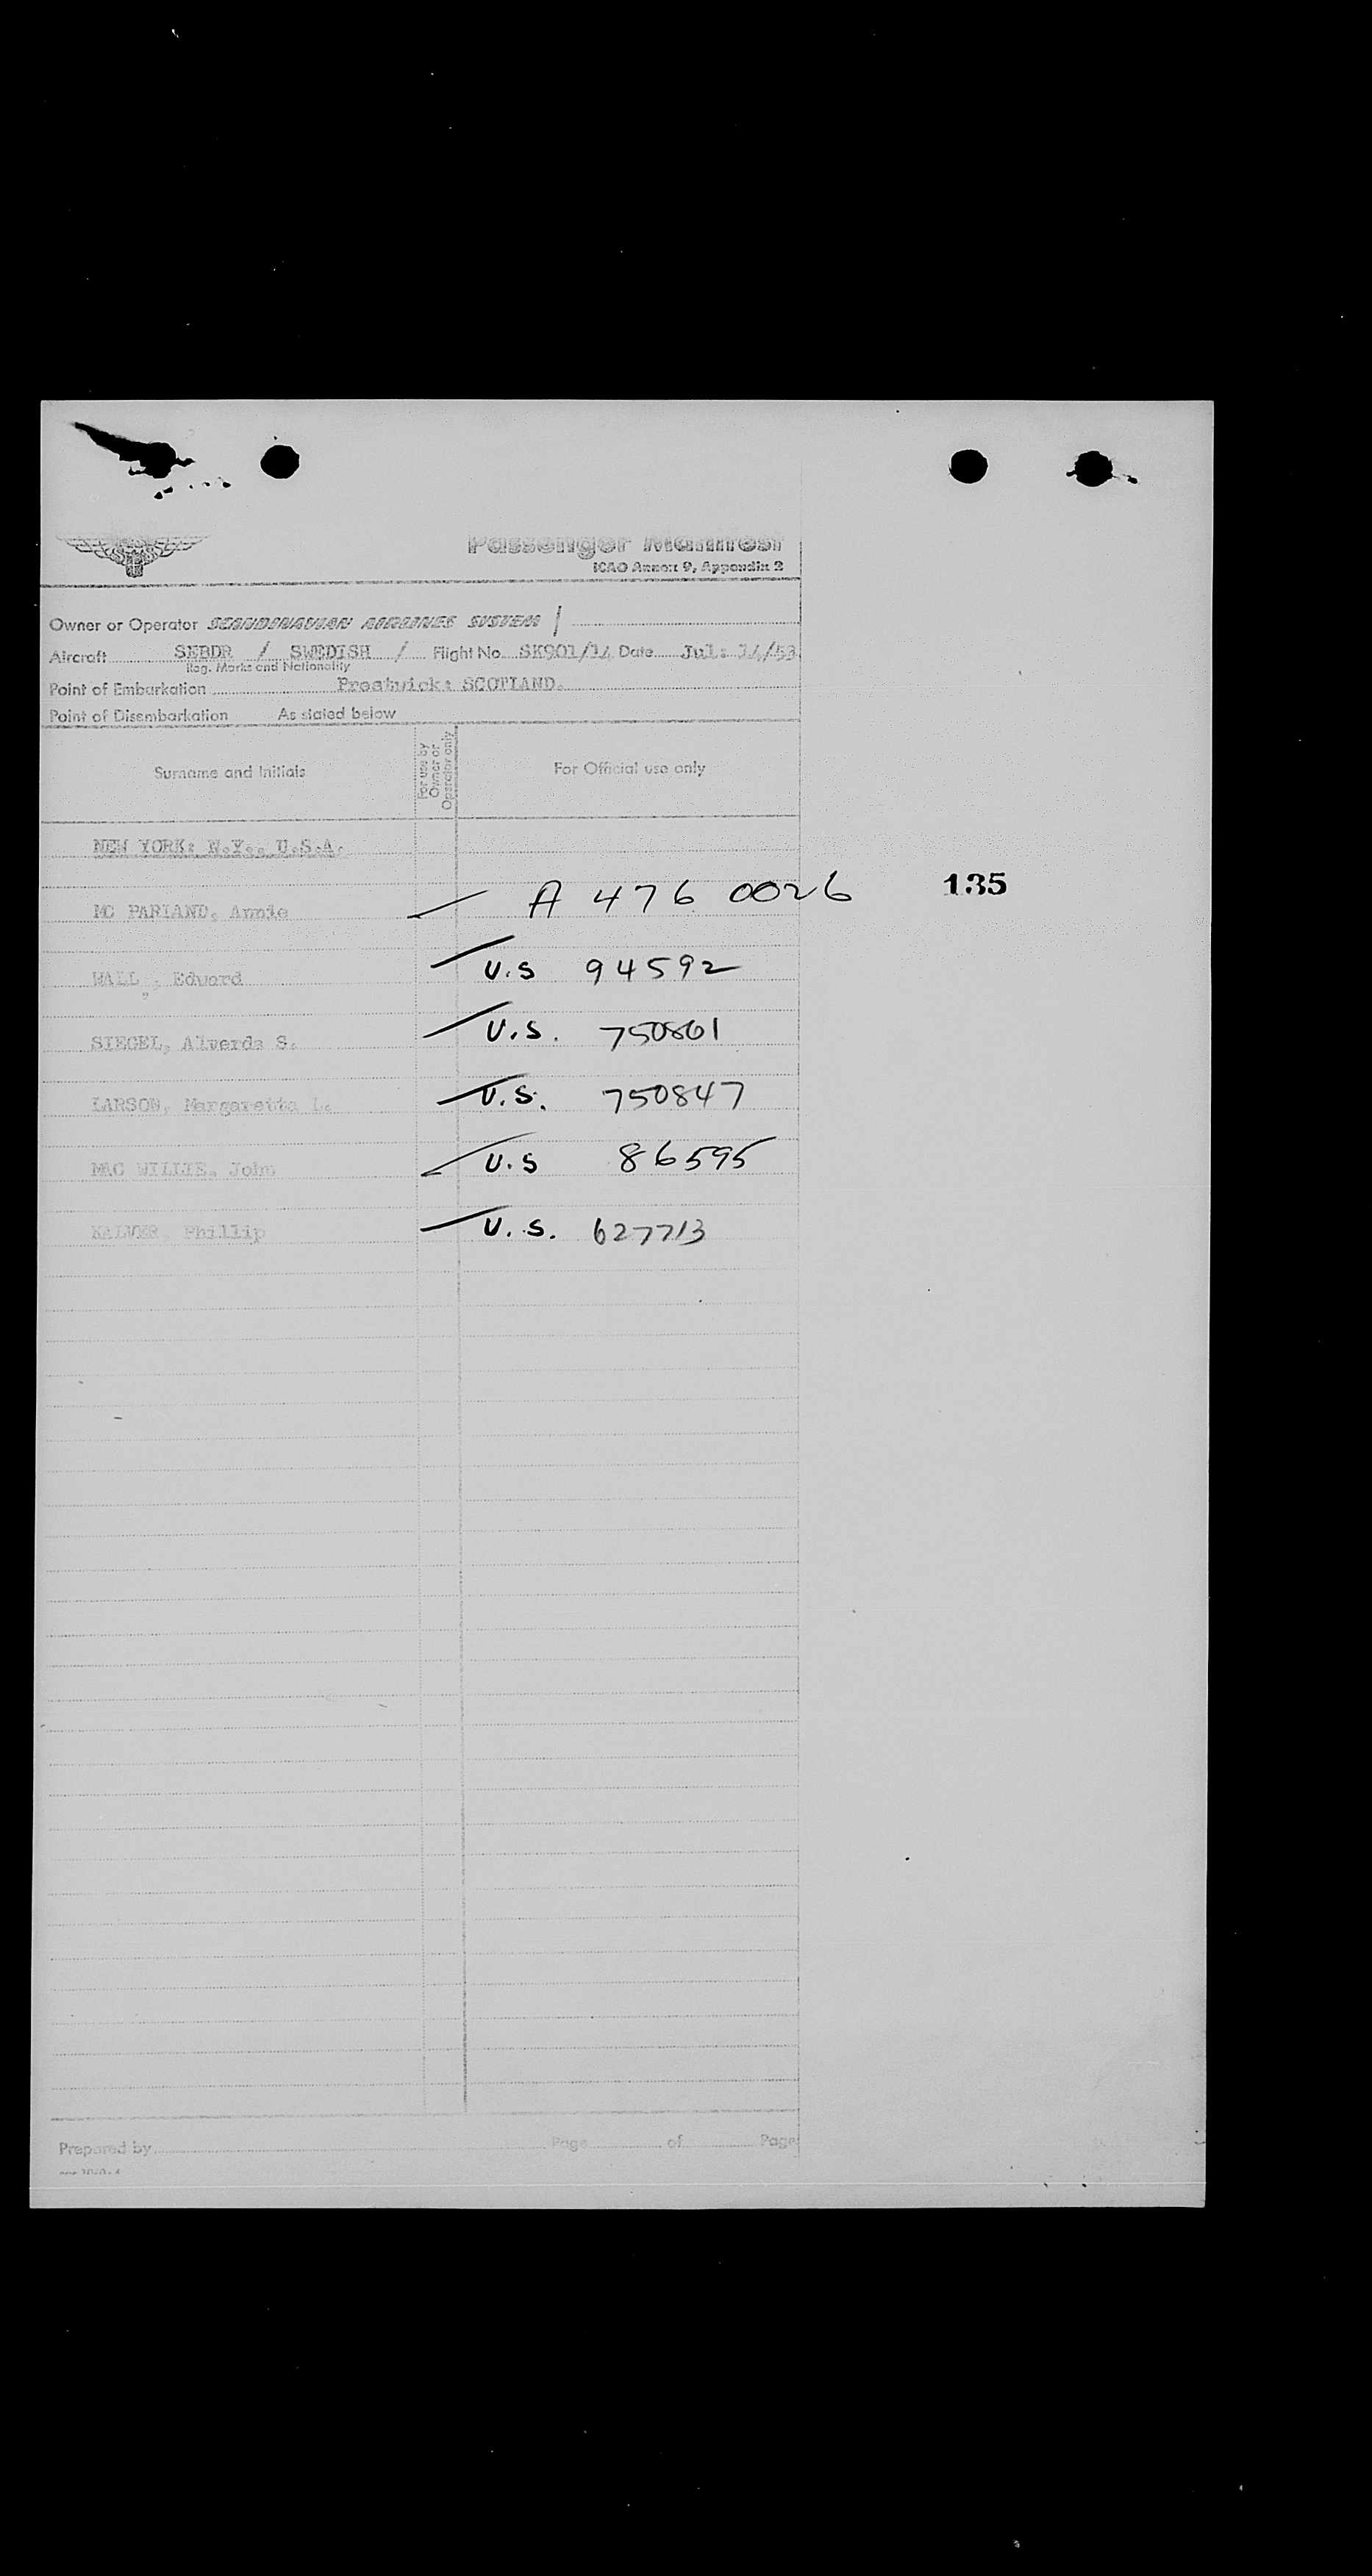 Passenger Manifest
ICAO Annex 9, Appendix 2
Owner or Operator SCANDINAVIAN AIRLINES SYSTEM
Aircraft SEBDR / SWEDISH / Flight No. SK901/14 Date Jul: 14/53
Reg. Marks and Nationality
Point of Embarkation Prestwick: SCOTLAND.
Point of Disembarkation As stated below
Surname and Initials For use by Owner or Operator only For Official use only
NEW YORK: N.Y., U.S.A.
MC PARLAND, Annie A 476 0026 135
WALL, Edward U.S 94592
SIEGEL, Alverda S. U.S. 750861
LARSON, Margaretta L. U.S. 750847
MAC WILLIE, John U.S 86595
KALVER, Phillip U.S. 627713
Prepared by Page of Page